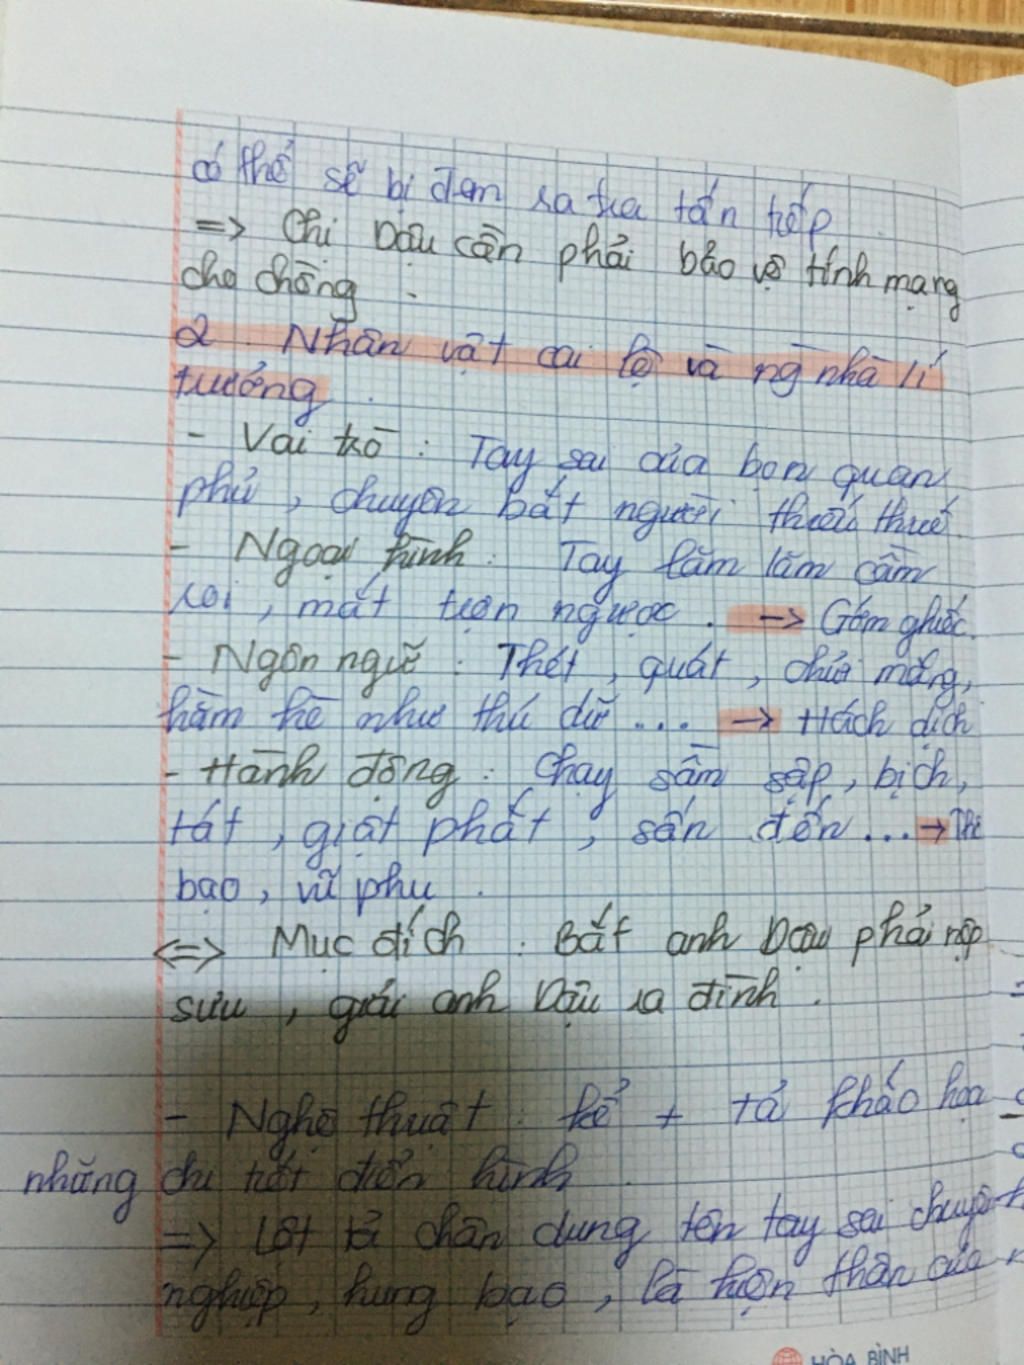 có thể sẽ bị đem ra tra tấn tiếp
=> Chị Dậu cần phải bảo vệ tính mạng
cho chồng.
2. Nhân vật cai lệ và ng nhà lí
trưởng.
- Vai trò : Tay sai của bọn quan
phủ, chuyên bắt người thiếu thuế.
- Ngoại hình : Tay lăm lăm cầm
roi, mắt trợn ngược. -> Gớm ghiếc.
- Ngôn ngữ : Thét, quát, chửi mắng,
hằm hè như thú dữ ... -> Hách dịch
- Hành động : Chạy sầm sập, bịch,
tát, giật phắt, sấn đến ... ->
bạo, vũ phu.
<=> Mục đích : Bắt anh Dậu phải nộp
sưu, giải anh Dậu ra đình.
- Nghệ thuật : kể + tả khắc họa
những chi tiết điển hình.
=> Lột tả chân dung tên tay sai chuyên
nghiệp, hung bạo, là hiện thân của
HÒA BÌNH